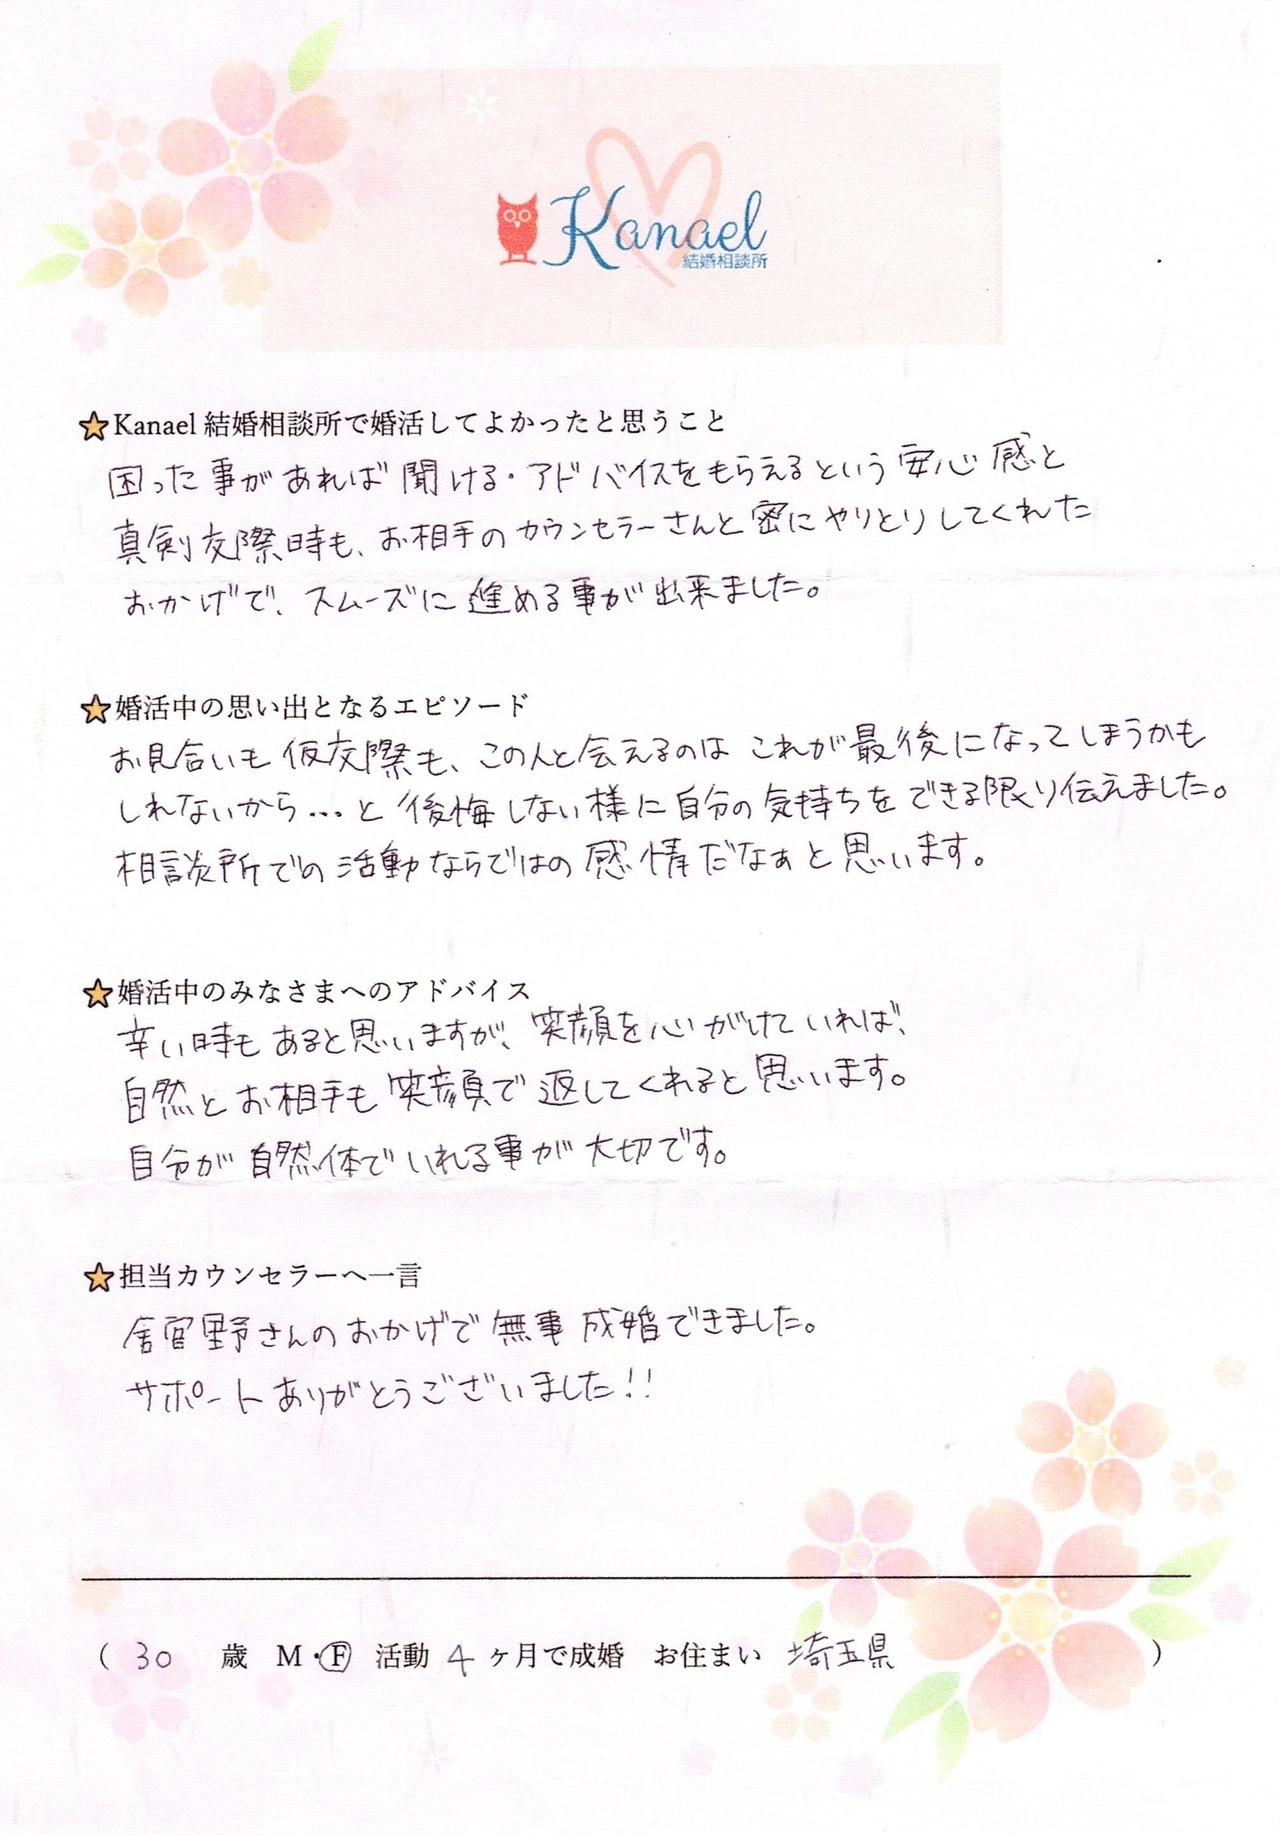 Kanael
結婚相談所
Kanael 結婚相談所で婚活してよかったと思うこと
困った事があれば聞ける・アドバイスをもらえるという安心感と
真剣交際時も、お相手のカウンセラーさんと密にやりとりしてくれた
おかげで、スムーズに進める事が出来ました。
婚活中の思い出となるエピソード
お見合いも仮交際も、この人と会えるのはこれが最後になってしまうかも
しれないから…と後悔しない様に自分の気持ちをできる限り伝えました。
相談所での活動ならではの感情だなぁと思います。
婚活中のみなさまへのアドバイス
辛い時もあると思いますが、笑顔を心がけていれば、
自然とお相手も笑顔で返してくれると思います。
自分が自然体でいれる事が大切です。
担当カウンセラーへ一言
野さんのおかげで無事成婚できました。
サポートありがとうございました!!
( 30 歳 M・F 活動 4 ヶ月で成婚 お住まい 埼玉県 )